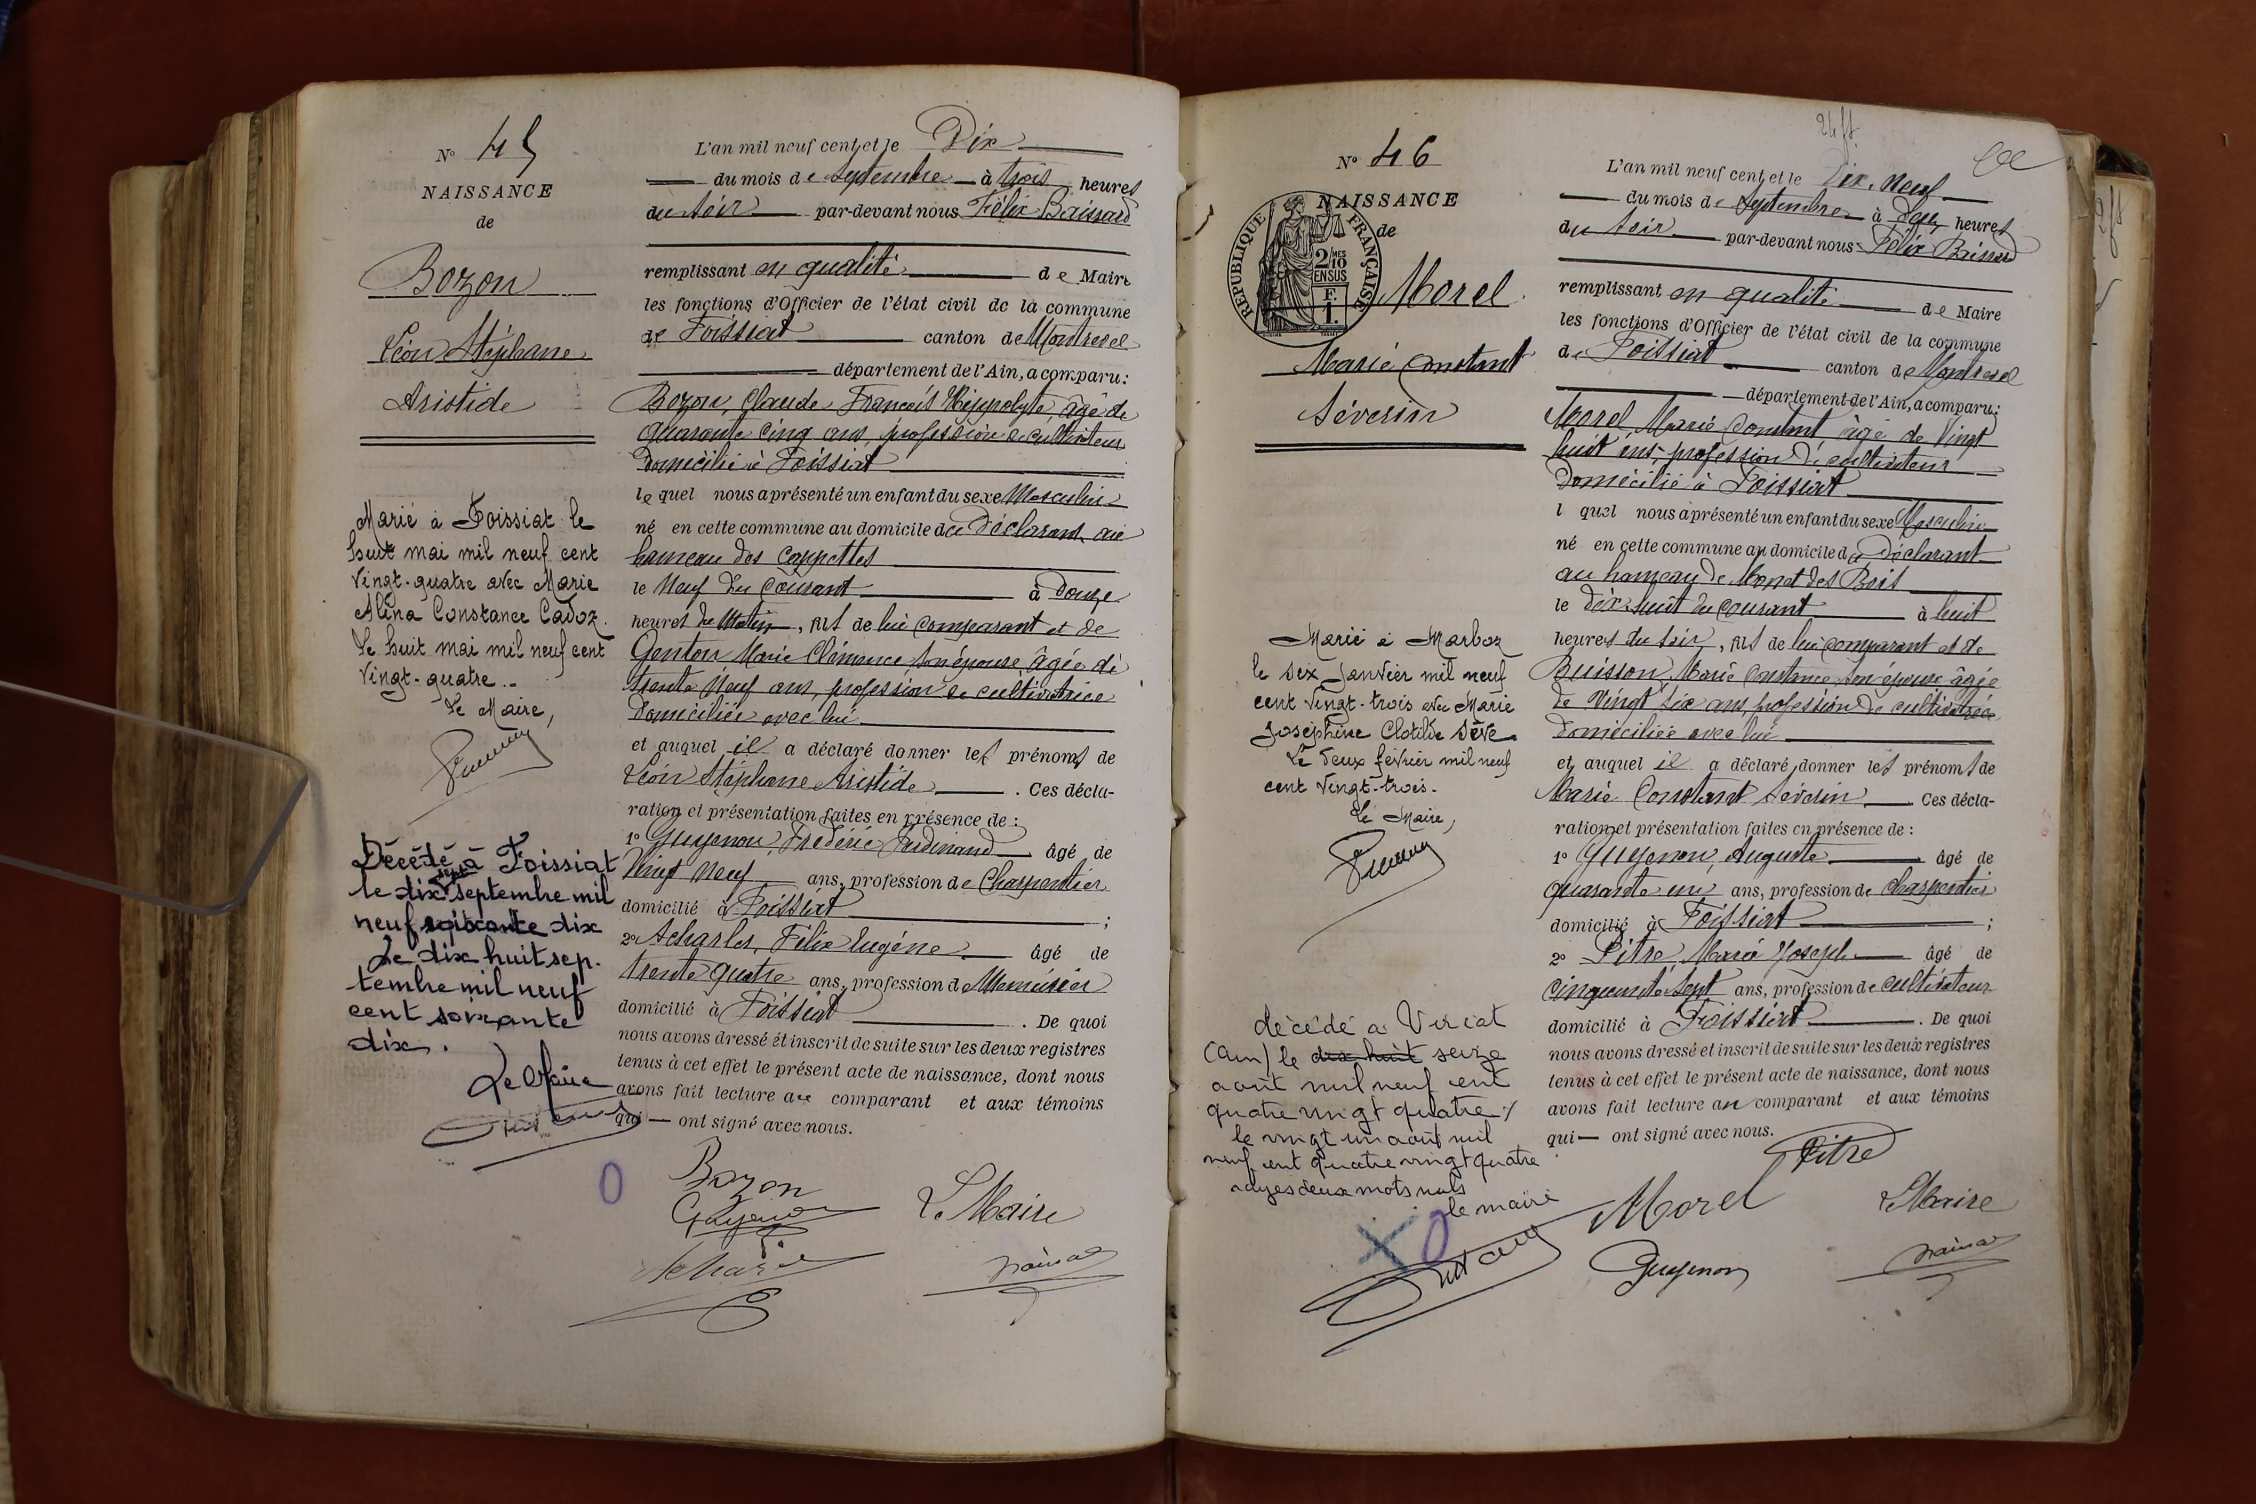 N° 45
NAISSANCE
de
Bozon
Léon Stéphane
Aristide
Marié à Foissiat le
huit mai mil neuf cent
vingt-quatre avec Marie
Alina Constance Cadoz.
Le huit mai mil neuf cent
vingt-quatre.-
Le Maire,
Décédé à Foissiat
le dix sept septembre mil
neuf soixante dix
Le dix huit sep.
tembre mil neuf
cent soixante
dix.
Le Maire
L'an mil neuf cent, et le Dix
du mois de Septembre à trois heures
du soir par-devant nous Félix Baissard
remplissant en qualité de Maire
les fonctions d'Officier de l'état civil de la commune
de Foissiat canton de Montrevel
département de l'Ain, a comparu :
Bozon, Claude François Hippolyte, âgé de
quarante cinq ans, profession de cultivateur
domicilié à Foissiat
lequel nous a présenté un enfant du sexe Masculin
né en cette commune au domicile du déclarant au
hameau des Carpettes
le Neuf du Courant à douze
heures du Matin, fils de lui comparant et de
Genton Marie Clémence son épouse âgée de
trente neuf ans, profession de cultivatrice
domiciliée avec lui
et auquel il a déclaré donner les prénoms de
Léon Stéphane Aristide. Ces décla-
ration et présentation faites en présence de :
1° Guyenon, Frédéric Ferdinand âgé de
Vingt Neuf ans, profession de Charpentier
domicilié à Foissiat ;
2° Acharles, Félix Eugène âgé de
trente quatre ans, profession de Menuisier
domicilié à Foissiat. De quoi
nous avons dressé et inscrit de suite sur les deux registres
tenus à cet effet le présent acte de naissance, dont nous
avons fait lecture au comparant et aux témoins
qui — ont signé avec nous.
Bozon
Guyenon
Le Maire
N° 46
NAISSANCE
de
RÉPUBLIQUE FRANÇAISE
2/10 MES
EN SUS
F.
1.
Morel
Marie Constant
Séverin
Marié à Marboz
le six Janvier mil neuf
cent vingt-trois avec Marie
Joséphine Clotilde Sève.
Le deux février mil neuf
cent vingt-trois.-
Le Maire,
décédé à Viriat
(Ain) le dix huit seize
août mil neuf cent
quatre vingt quatre ./
le vingt un août mil
neuf cent quatre vingt quatre
rayés deux mots nuls
le maire
L'an mil neuf cent, et le Dix-Neuf
du mois de Septembre à deux heures
du soir par-devant nous Félix Baissard
remplissant en qualité de Maire
les fonctions d'Officier de l'état civil de la commune
de Foissiat canton de Montrevel
département de l'Ain, a comparu :
Morel Marie Constant âgé de Vingt
huit ans, profession de cultivateur
domicilié à Foissiat
l quel nous a présenté un enfant du sexe Masculin
né en cette commune au domicile du déclarant
au hameau de Monet des Bois
le dix-huit du courant à huit
heures du soir, fils de lui comparant et de
Buisson, Marie Constance, son épouse âgée
de Vingt six ans, profession de cultivatrice
domiciliée avec lui
et auquel il a déclaré donner les prénoms de
Marie Constant Séverin. Ces décla-
ration et présentation faites en présence de :
1° Guyenon, Auguste âgé de
quarante un ans, profession de charpentier
domicilié à Foissiat ;
2° Pitre Marie Joseph âgé de
cinquante sept ans, profession de cultivateur
domicilié à Foissiat. De quoi
nous avons dressé et inscrit de suite sur les deux registres
tenus à cet effet le présent acte de naissance, dont nous
avons fait lecture au comparant et aux témoins
qui — ont signé avec nous.
Pitre
Morel
Le Maire
Guyenon